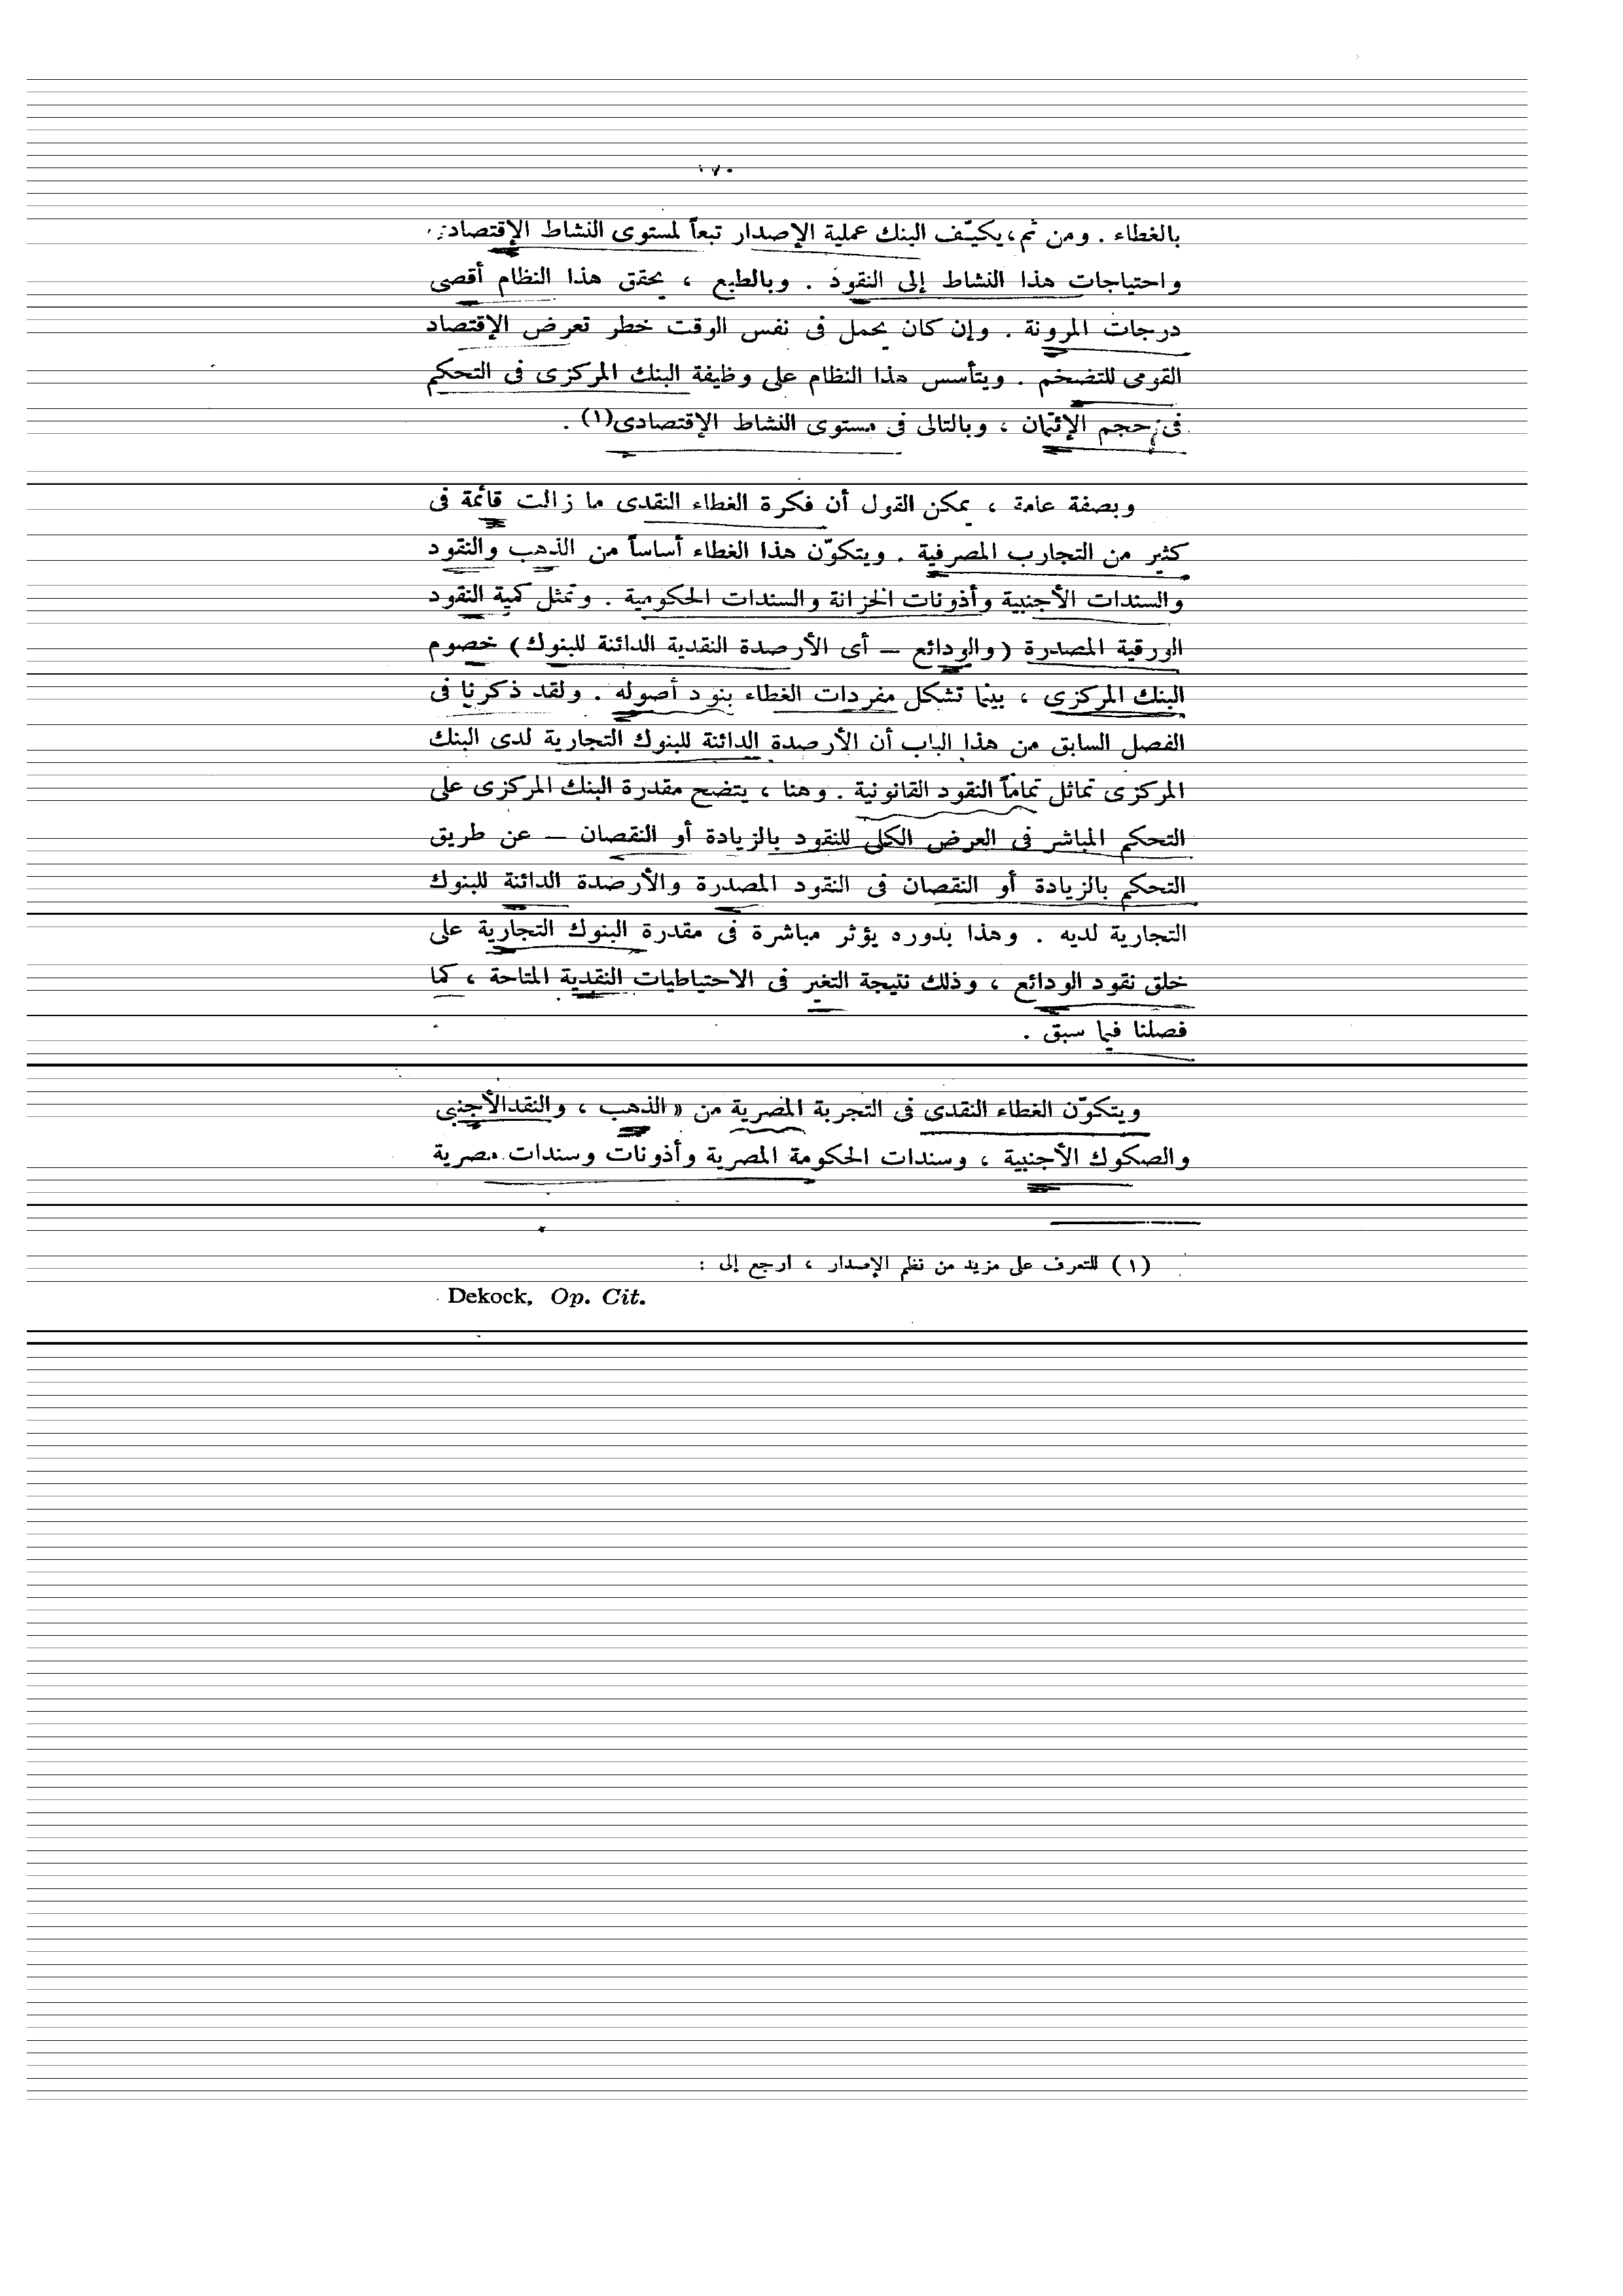 بالغطاء . ومن ثم ، يكيّف البنك عملية الإصدار تبعاً لمستوى النشاط الإقتصادى
واحتياجات هذا النشاط إلى النقود . وبالطبع ، يحقق هذا النظام أقصى
درجات المرونة . وإن كان يحمل فى نفس الوقت خطر تعرض الإقتصاد
القومى للتضخم . ويتأسس هذا النظام على وظيفة البنك المركزى فى التحكم
فى حجم الإئتمان ، وبالتالى فى مستوى النشاط الإقتصادى(١) .
وبصفة عامة ، يمكن القول أن فكرة الغطاء النقدى ما زالت قائمة فى
كثير من التجارب المصرفية . ويتكوّن هذا الغطاء أساساً من الذهب والنقود
والسندات الأجنبية وأذونات الخزانة والسندات الحكومية . وتمثل كمية النقود
الورقية المصدرة (والودائع – أى الأرصدة النقدية الدائنة للبنوك) خصوم
البنك المركزى ، بينما تشكل مفردات الغطاء بنود أصوله . ولقد ذكرنا فى
الفصل السابق من هذا الباب أن الأرصدة الدائنة للبنوك التجارية لدى البنك
المركزى تماثل تماماً النقود القانونية . وهنا ، يتضح مقدرة البنك المركزى على
التحكم المباشر فى العرض الكلى للنقود بالزيادة أو النقصان – عن طريق
التحكم بالزيادة أو النقصان فى النقود المصدرة والأرصدة الدائنة للبنوك
التجارية لديه . وهذا بدوره يؤثر مباشرة فى مقدرة البنوك التجارية على
خلق نقود الودائع ، وذلك نتيجة التغير فى الاحتياطيات النقدية المتاحة ، كما
فصلنا فيما سبق .
ويتكوّن الغطاء النقدى فى التجربة المصرية من « الذهب ، والنقد الأجنبى
والصكوك الأجنبية ، وسندات الحكومة المصرية وأذونات وسندات مصرية
(١) للتعرف على مزيد من نظم الإصدار ، ارجع إلى :
Dekock, Op. Cit.